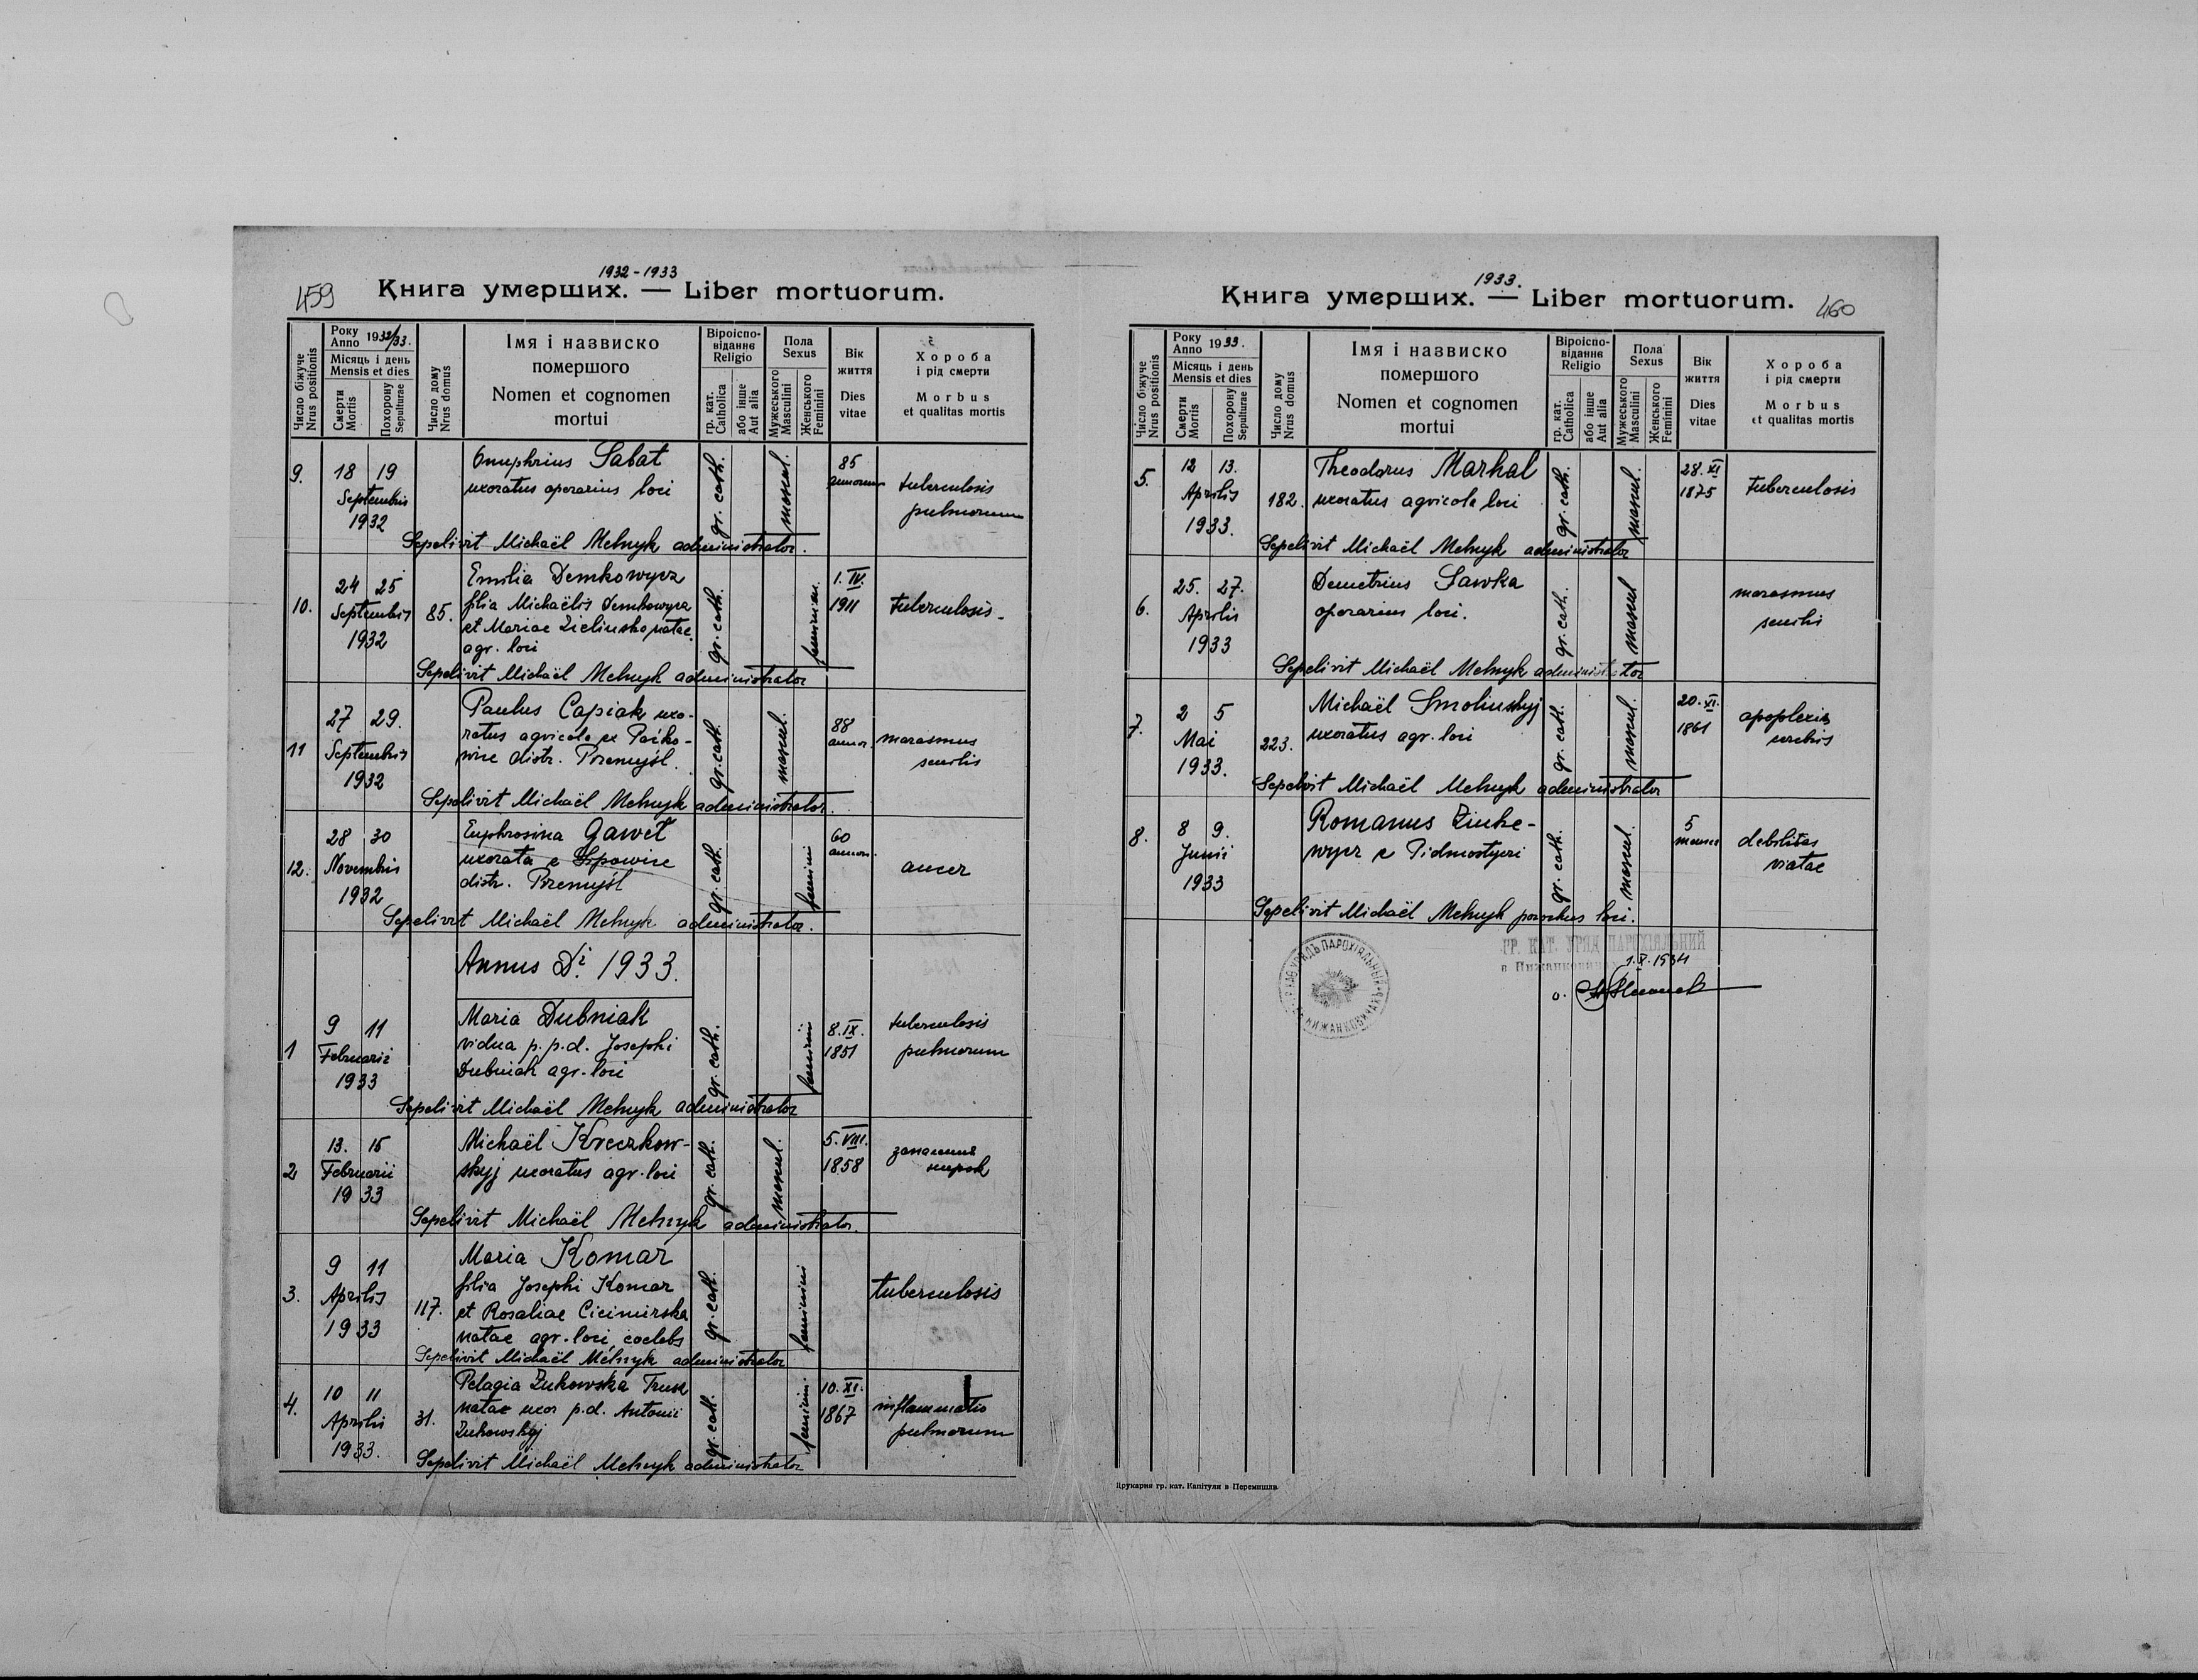 1932-1933
459
Книга умерших. — Liber mortuorum.
Число біжуче
Nrus positionis
Року
Anno 1932/33.
Місяць і день
Mensis et dies
Смерти
Mortis
Похорону
Sepulturae
Число дому
Nrus domus
Імя і назвиско
помершого
Nomen et cognomen
mortui
Віроіспо-
віданнє
Religio
гр. кат.
Catholica
або інше
Aut alia
Пола
Sexus
Мужеського
Masculini
Женського
Feminini
Вік
життя
Dies
vitae
Хороба
і рід смерти
Morbus
et qualitas mortis
9. 18 19
Septembris
1932
Onuphrius Sabat
uxoratus operarius loci
gr. cath.
mascul.
85
annorum
tuberculosis
pulmorum
Sepelivit Michaël Melnyk administrator.
10. 24 25
Septembris
1932
85.
Emilia Demkowycz
filia Michaëlis Demkowycz
et Mariae Zielinska natae
agr. loci
gr. cath.
feminini.
1. IV.
1911
tuberculosis
Sepelivit Michaël Melnyk administrator
11 27 29.
Septembris
1932
Paulus Capiak uxo-
ratus agricola ex
distr. Przemyśl.
gr. cath.
mascul.
88
annor.
marasmus
senilis
Sepelivit Michaël Melnyk administrator.
12. 28 30
Novembris
1932
Euphrosina Gaweł
uxorata e
distr. Przemyśl
gr. cath.
feminini
60
annor.
cancer
Sepelivit Michaël Melnyk administrator.
Annus Di. 1933.
1 9 11
Februarii
1933
Maria Dubniak
vidua p. p. d. Josephi
Dubniak agr. loci
gr. cath.
feminini
8. IX.
1851
tuberculosis
pulmorum
Sepelivit Michaël Melnyk administrator
2 13. 15
Februarii
1933
Michaël Kreczkow-
skyj uxoratus agr. loci
gr. cath.
mascul.
5. VIII.
1858
запалення
нирок
Sepelivit Michaël Melnyk administrator.
3. 9 11
Aprilis
1933
117.
Maria Komar
filia Josephi Komar
et Rosaliae Cicimirska
natae agr. loci, coelebs
gr. cath.
feminini
tuberculosis
Sepelivit Michaël Melnyk administrator
4. 10 11
Aprilis
1933.
31.
Pelagia Żukowska
natae uxor p. d. Antonii
Żukowskyj
gr. cath.
feminini.
10. XI.
1867
inflammatio
pulmorum
Sepelivit Michaël Melnyk administrator
1933.
Книга умерших. — Liber mortuorum.
460
Число біжуче
Nrus positionis
Року
Anno 1933.
Місяць і день
Mensis et dies
Смерти
Mortis
Похорону
Sepulturae
Число дому
Nrus domus
Імя і назвиско
помершого
Nomen et cognomen
mortui
Віроіспо-
віданнє
Religio
гр. кат.
Catholica
або інше
Aut alia
Пола
Sexus
Мужеського
Masculini
Женського
Feminini
Вік
життя
Dies
vitae
Хороба
і рід смерти
Morbus
et qualitas mortis
5. 12 13.
Aprilis
1933.
182.
Theodorus Marhal
uxoratus agricola loci
gr. cath.
mascul.
28. XI
1875
tuberculosis
Sepelivit Michaël Melnyk administrator
6. 25. 27.
Aprilis
1933
Demetrius Sawka
operarius loci.
gr. cath.
mascul
marasmus
senilis
Sepelivit Michaël Melnyk administrator
7. 2 5
Mai
1933.
223.
Michaël Smolinskyj
uxoratus agr. loci
gr. cath.
mascul.
20. XI.
1861
apoplexia
Sepelivit Michaël Melnyk administrator
8. 8 9.
Junii
1933
Romanus Zinke-
wycz e Pidmostyczi
gr. cath.
mascul.
5
menses
debilitas
Sepelivit Michaël Melnyk parochus loci.
ГР. КАТ. УРЯД ПАРОХІЯЛЬНИЙ
1. X. 1934
о.
Друкарня гр. кат. Капітули в Перемишли.